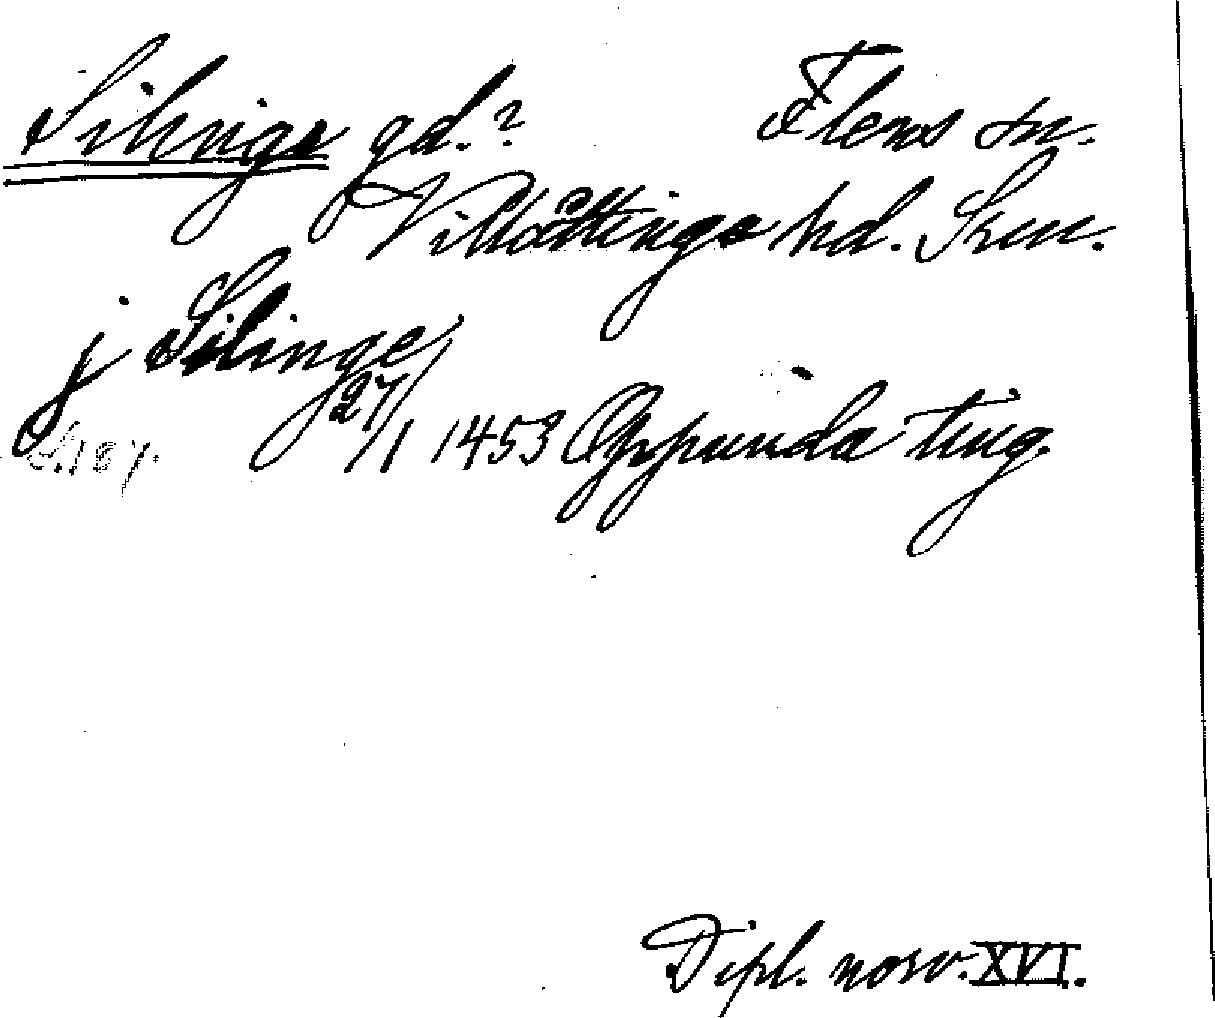 Silinge gd.? Flens sn.
Villåttinge hd. Srm.
j Silinge
27/1 1453 Oppunda ting.
Dipl. norv. XVI.